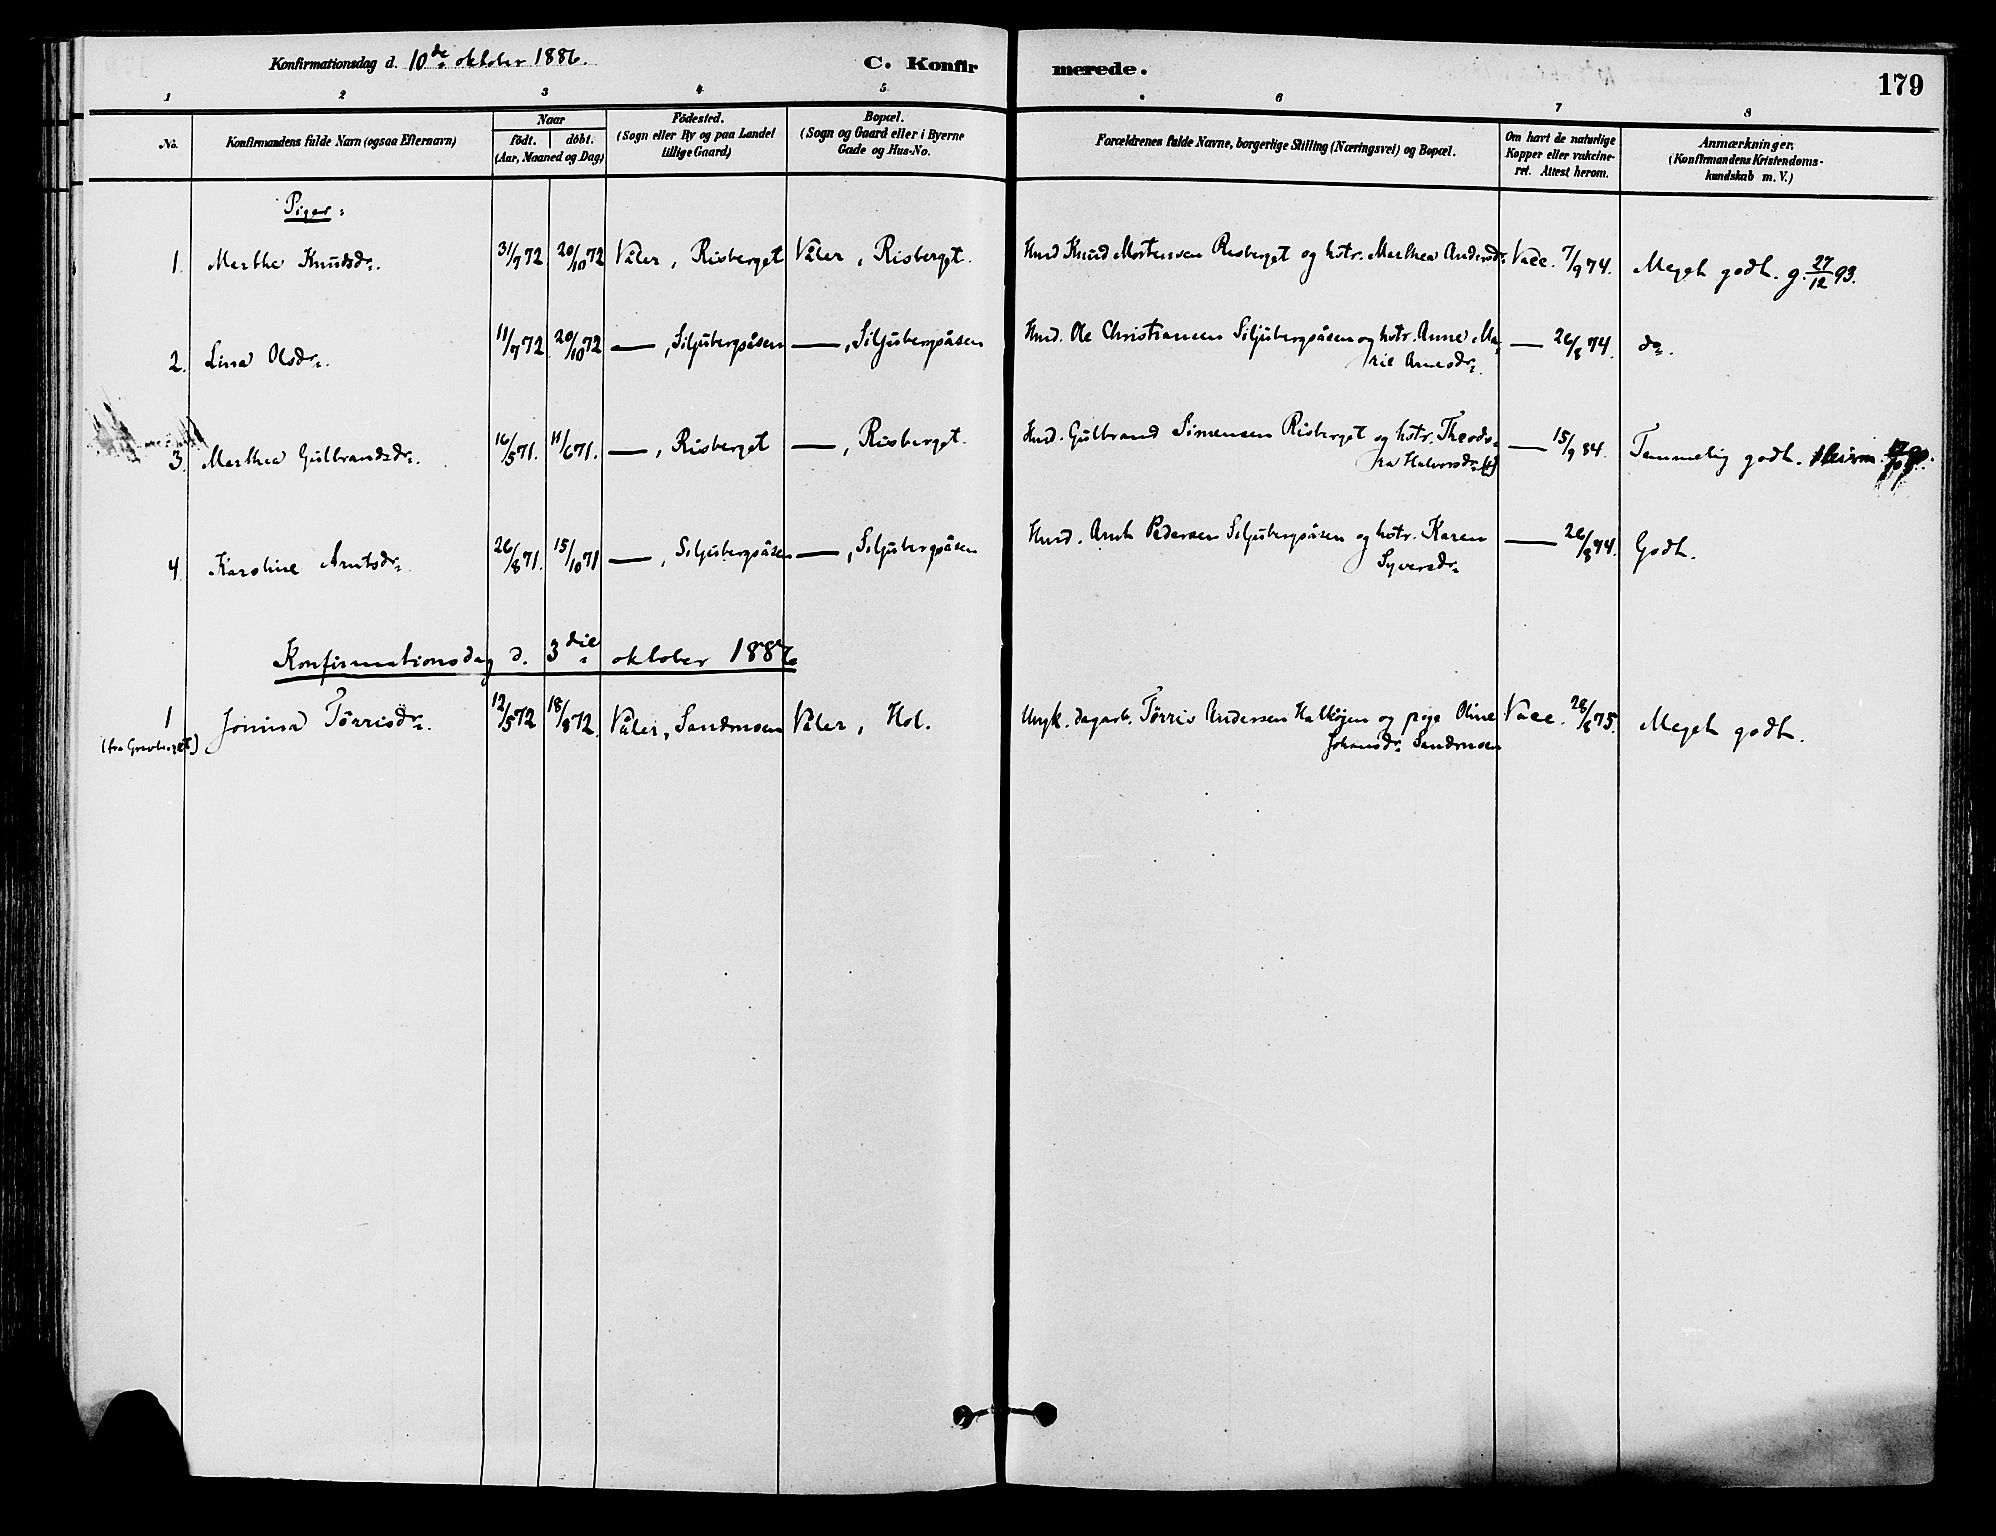 Konfirmationsdag d. 10de oktober 1886.
C. Konfirmerede.
179
1 2 3 4 5 6 7 8
No.
Konfirmandens fulde Navn (ogsaa Efternavn)
Naar
födt. döbt.
(Aar, Maaned og Dag)
Födested.
(Sogn eller By og paa Landet
tillige Gaard)
Bopæl.
(Sogn og Gaard eller i Byerne
Gade og Hus-No.
Forældrenes fulde Navne, borgerlige Stilling (Næringsvei) og Bopæl.
Om havt de naturlige
Kopper eller vakcine-
ret. Attest herom.
Anmærkninger.
(Konfirmandens Kristendoms-
kundskab m. V.)
Piger:
1. Marthe Knudsdr. 31/7 72 20/10 72 Våler, Risberget Våler, Risberget. Hmd Knud Mortensen Risberget og hstr. Marthea Andersdr. Vacc. 7/9 74. Meget godt. g. 27/12 93.
2. Lina Olsdr. 11/7 72 20/10 72 — , Siljubergsåsen — , Siljubergsåsen Hmd. Ole Christiansen Siljubergsåsen og hstr. Anne Ma-
rie Arnesdr. — 26/8 74. do.
3. Marthea Gulbrandsdr. 16/5 71. 11/6 71. — , Risberget — , Risberget. Hmd. Gulbrand Simensen Risberget og hstr. Theodo-
ra Halvorsdr. (†) — 15/9 84. Temmelig godt.
4. Karoline Arntsdr. 26/8 71. 15/10 71 — , Siljubergsåsen — , Siljubergsåsen Hmd. Arnt Pedersen Siljubergsåsen og hstr. Karen
Syversdr. — 26/8 74. Godt.
Konfirmationsdag d. 3die oktober 1886
1 Jonina Tørrisdr. 12/5 72 18/8 72. Våler, Sandmoen Våler, Hol. Ungk. dagarb. Tørris Andersen Halhøjen og pige Oline Vacc. 28/8 75. Meget godt.
(fra Gravberget) Johansdr. Sandmoen